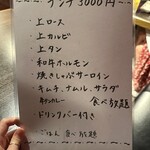 ランチ 3000円〜
・上ロース
・上カルビ
・上タン
・和牛ホルモン
・焼きしゃぶサーロイン
・キムチ、ナムル、サラダ
牛すじカレー 食べ放題
・ドリンクバー付き
ごはん 食べ放題